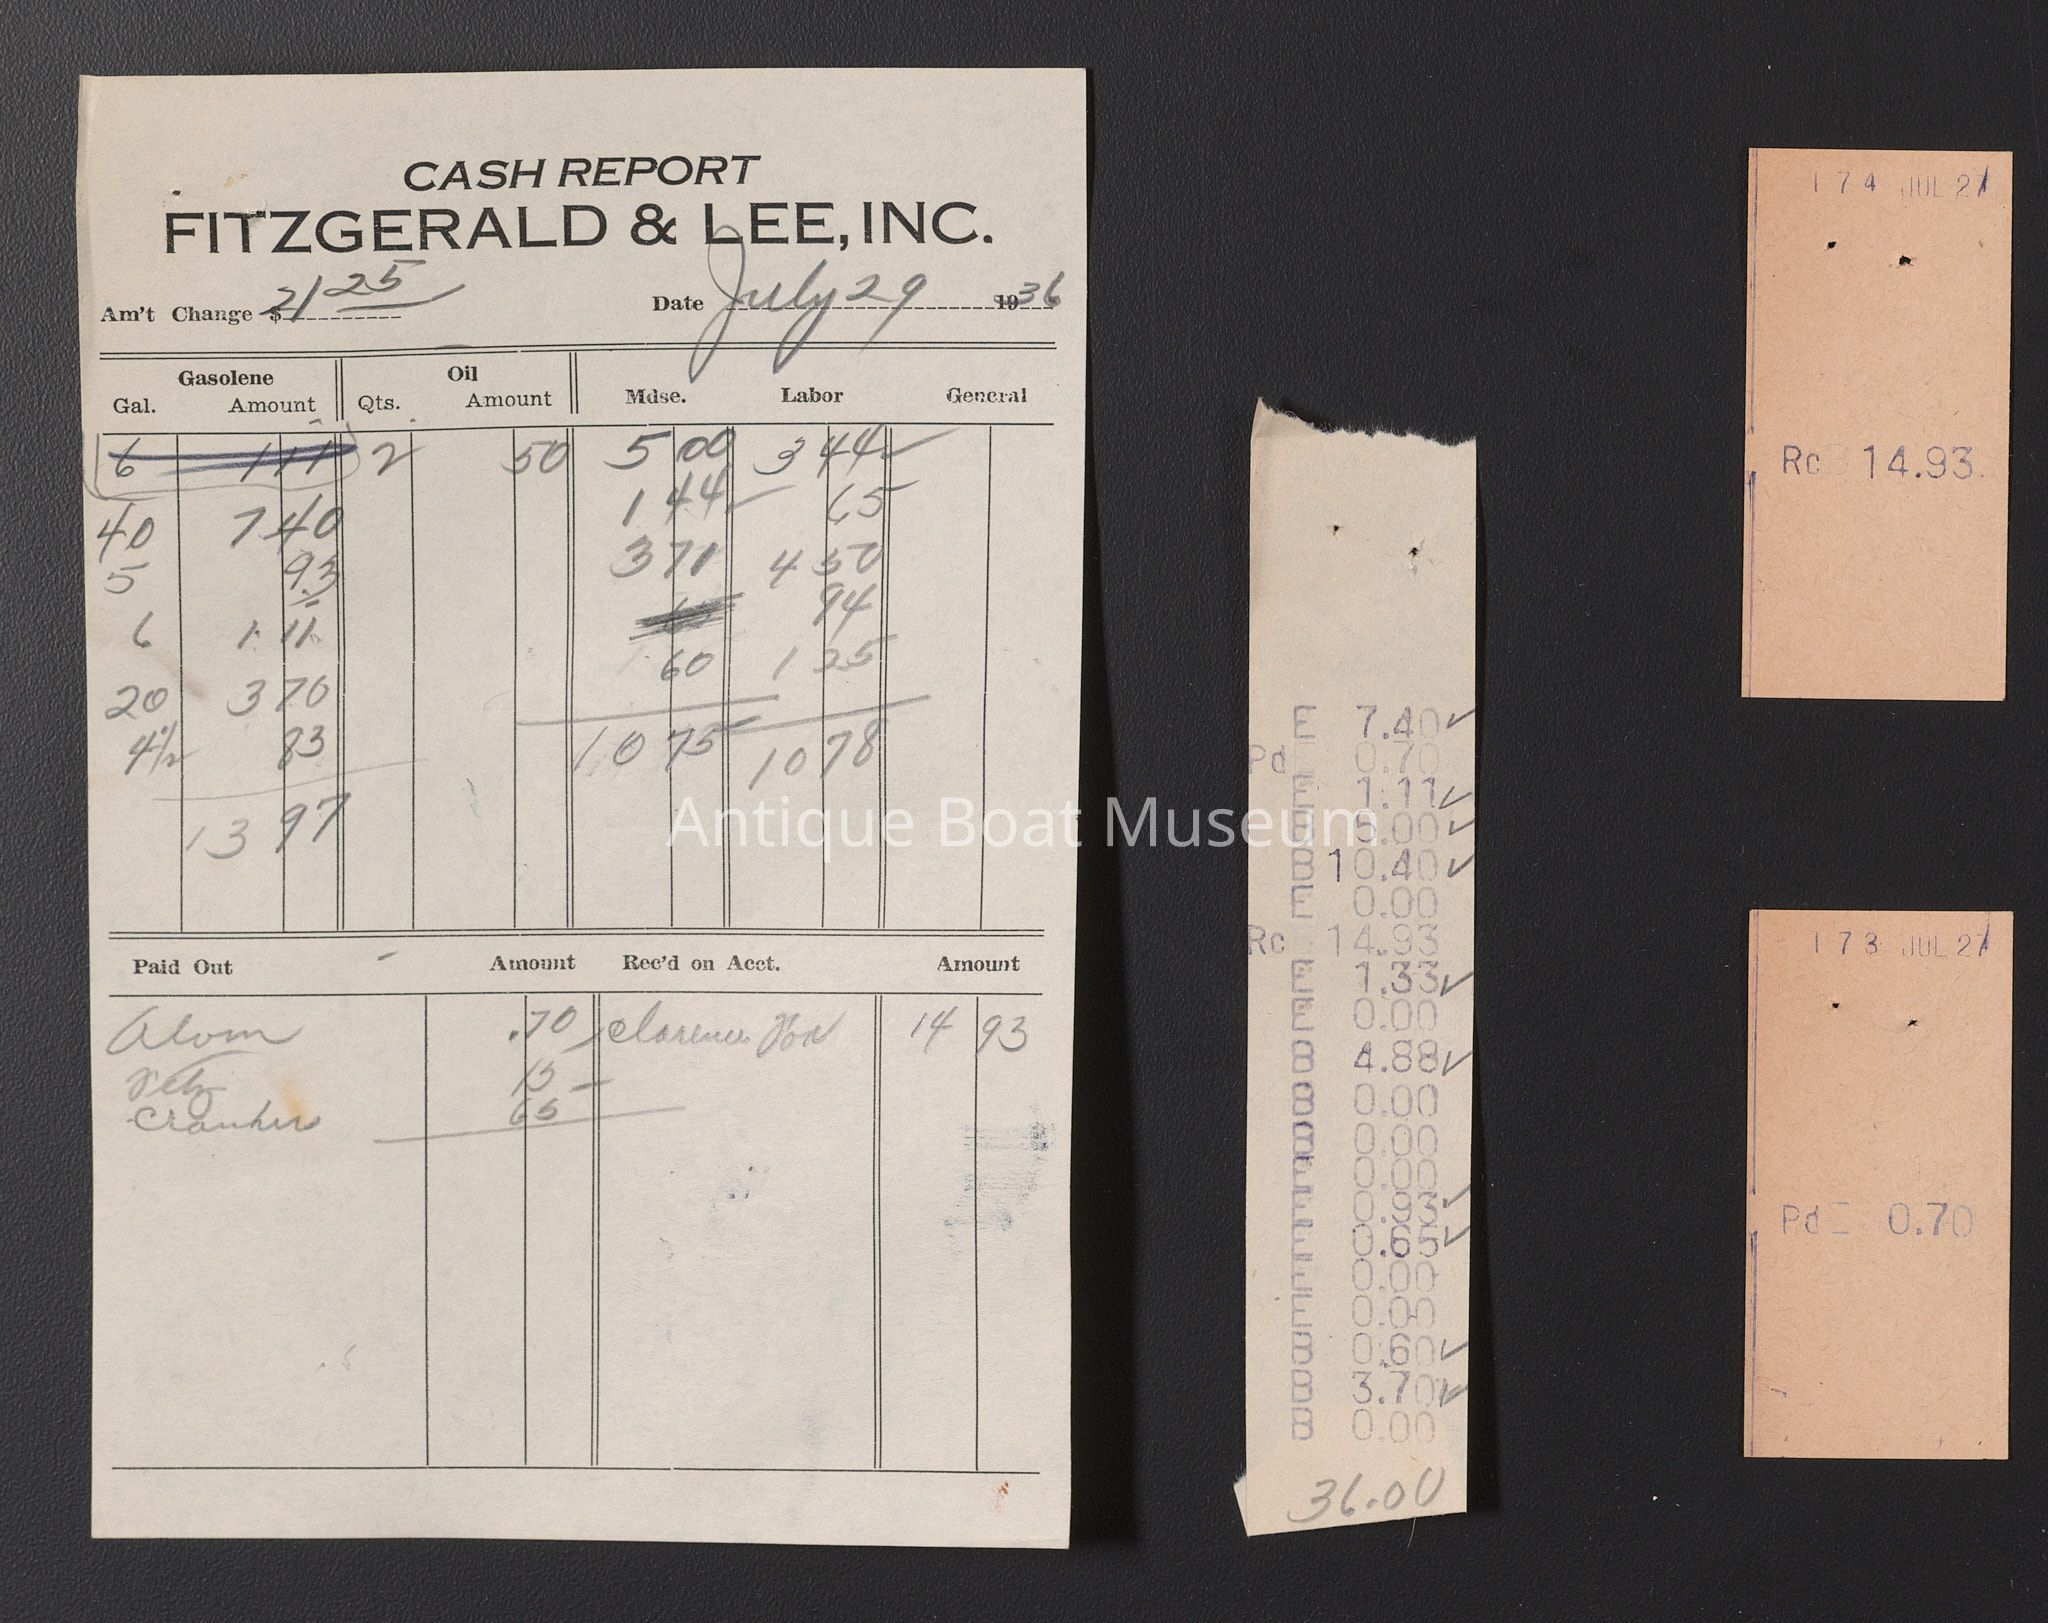 CASH REPORT
FITZGERALD & LEE, INC.
Am't Change $ 21 25 Date July 29 1936
Gasolene Oil Mdse. Labor General
Gal. Amount Qts. Amount
6 1 11 2 50 5 00 3 44 ✓
40 7 40 1 44 ✓ 65
5 93 3 71 4 50
6 1 11 94
20 3 70 60 1 25
4 1/2 83 10 75 10 78
13 97
Paid Out Amount Rec'd on Acct. Amount
.70 Clarence 14 93
15
65
E 7.40 ✓
Pd 0.70
E 1.11 ✓
B 5.00 ✓
B 10.40 ✓
E 0.00
Rc 14.93
E 1.33 ✓
E 0.00
B 4.88 ✓
B 0.00
B 0.00
E 0.00
E 0.93 ✓
E 0.65 ✓
E 0.00
E 0.00
B 0.60 ✓
B 3.70 ✓
B 0.00
36.00
174 JUL 27
Rc B 14.93
173 JUL 27
Pd E 0.70
Antique Boat Museum